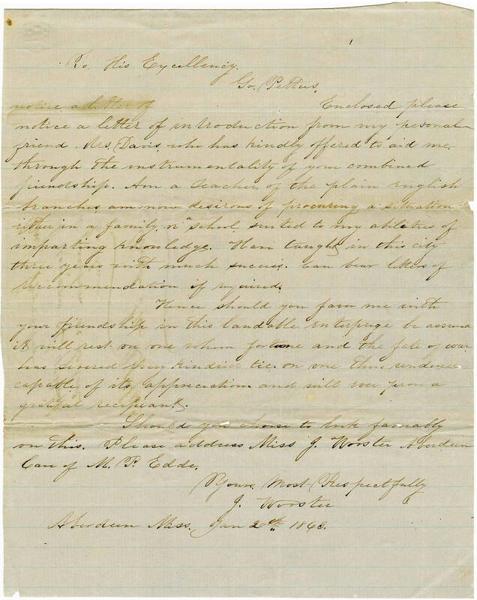 To His Excellency
Go, Pettus.
notice a letter of Enclosed please
notice a letter of introduction from my pesonal
friend Mrs Davis, who has kindly offered to aid me
through the instrumentality of your combined
friendship. Am a teacher, of the plain english
branches am now desirous of procuring a situation
in a family or school, suited to my abilities of
imparting knowledge. Have taught in this city
three years with much success. Can bear letters of
Reccommendation if required.
Hence should you favor me with
your friendship in this laudable enterprise be assured
it will rest on one whom fortune and the fate of war
has severed every kindred tie, on one thus rendered
capable of its appreciation and will ever prove a
grateful recipeant.
Should you choose to look favorably
on this. Please address Miss J. Worster Aberdeen
Care of M. P. Edde,
Yours Most Respectfully
J. Worster
Aberdeen Miss. Jan 2th 1863.